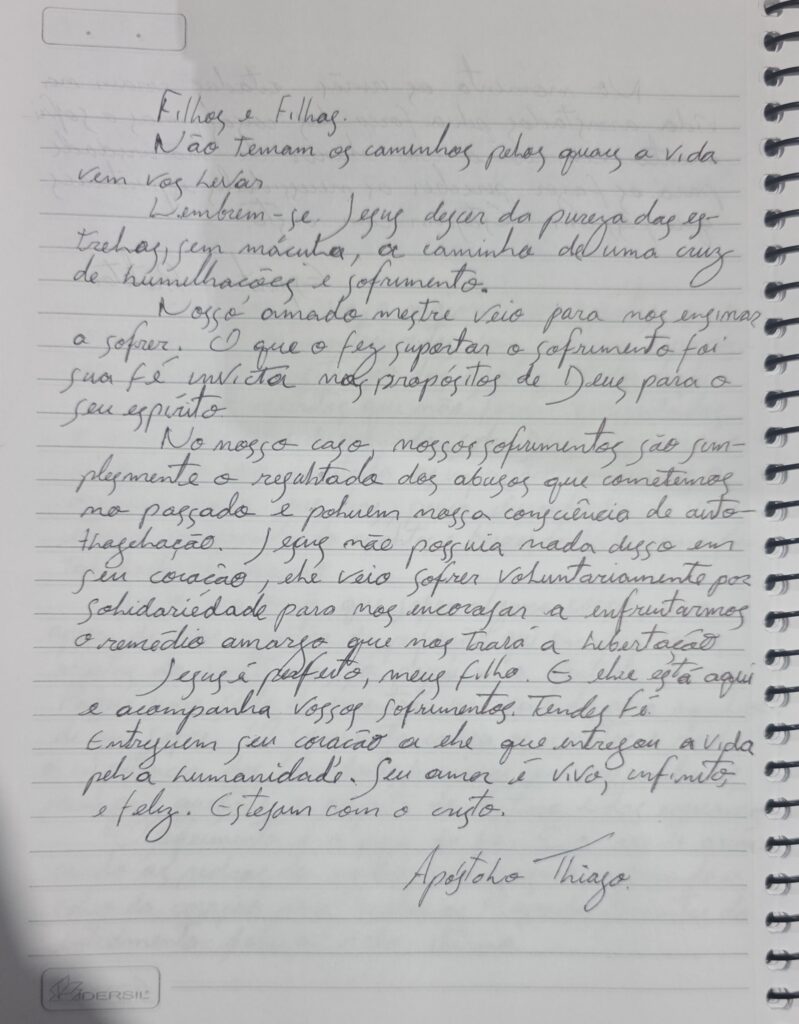 Filhos e Filhas.
Não temam os caminhos pelos quais a vida
vem vos levar
Lembrem-se. Jesus descer da pureza das es-
trelas, sem mácula, a caminho de uma cruz
de humelhações e sofrimento.
Nosso amado mestre veio para nos ensinar
a sofrer. O que o fez suportar o sofrimento foi
sua fé invicta nos propósitos de Deus para o
seu espírito
No nosso caso, nossos sofrimentos são sim-
plesmente o resultado dos abusos que cometemos
no passado e poluem nossa consciência de auto-
flagelação. Jesus não possuia nada disso em
seu coração, ele veio sofrer voluntariamente por
solidariedade para nos encorajar a enfrentarmos
o remédio amargo que nos trará a libertação
Jesus é perfeito, meus filho. E ele está aqui
e acompanha vossos sofrimentos. Tendes fé.
Entreguem seu coração a ele que entregou a vida
pela humanidade. Seu amor é vivo, infinito,
e feliz. Estejam com o cristo.
Apóstolo Thiago.